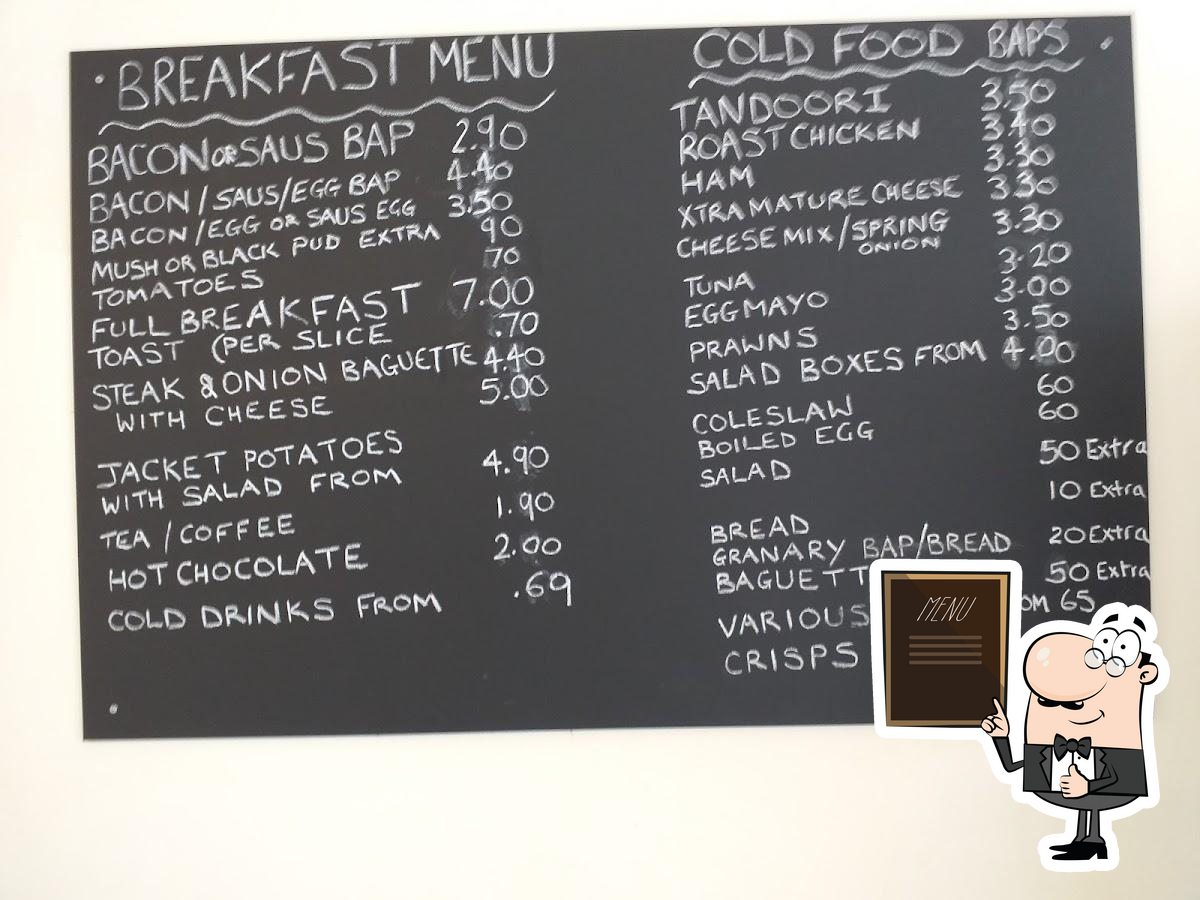 BREAKFAST MENU
BACON OR SAUS BAP 2.90
BACON / SAUS/EGG BAP 4.40
BACON /EGG OR SAUS EGG 3.50
MUSH OR BLACK PUD EXTRA 90
TOMATOES 70
FULL BREAKFAST 7.00
TOAST (PER SLICE .70
STEAK & ONION BAGUETTE 4.40
WITH CHEESE 5.00
JACKET POTATOES
WITH SALAD FROM 4.90
TEA / COFFEE 1.90
HOT CHOCOLATE 2.00
COLD DRINKS FROM .69
COLD FOOD BAPS
TANDOORI 3.50
ROAST CHICKEN 3.40
HAM 3.30
XTRA MATURE CHEESE 3.30
CHEESE MIX / SPRING 3.30
ONION
TUNA 3.20
EGG MAYO 3.00
PRAWNS 3.50
SALAD BOXES FROM 4.00
COLESLAW 60
BOILED EGG 60
SALAD 50 Extra
BREAD 10 Extra
GRANARY BAP/BREAD 20 Extra
BAGUETT 50 Extra
VARIOUS OM 65
CRISPS
MENU